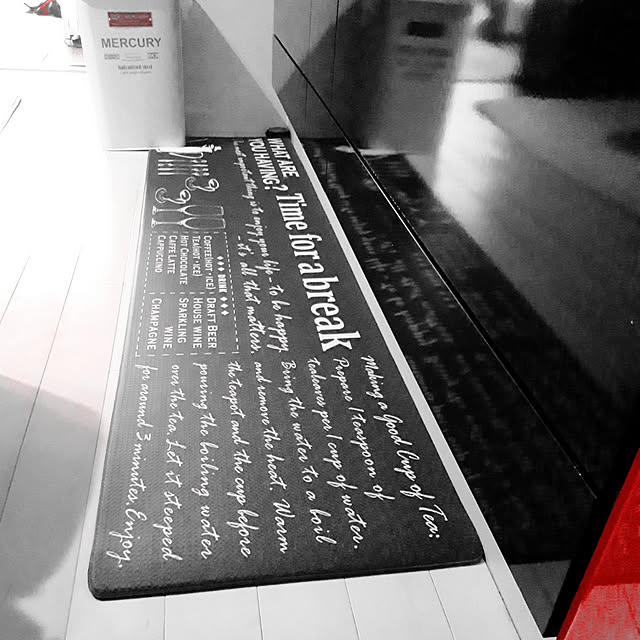 MERCURY
WHAT ARE
YOU HAVING?
Time for a break
important thing is to enjoy your life - to be happy
it's all that matters.
DRINK
COFFEE(HOT・ICE)
TEA(HOT・ICE)
HOT CHOCOLATE
CAFFE LATTE
CAPPUCCINO
DRAFT BEER
HOUSE WINE
SPARKLING
WINE
CHAMPAGNE
Making a Good Cup of Tea:
Prepare 1 teaspoon of
tealeaves per 1 cup of water.
Bring the water to a boil
and remove the heat. Warm
the teapot and the cup before
pouring the boiling water
over the tea. Let it steeped
for around 3 minutes. Enjoy.